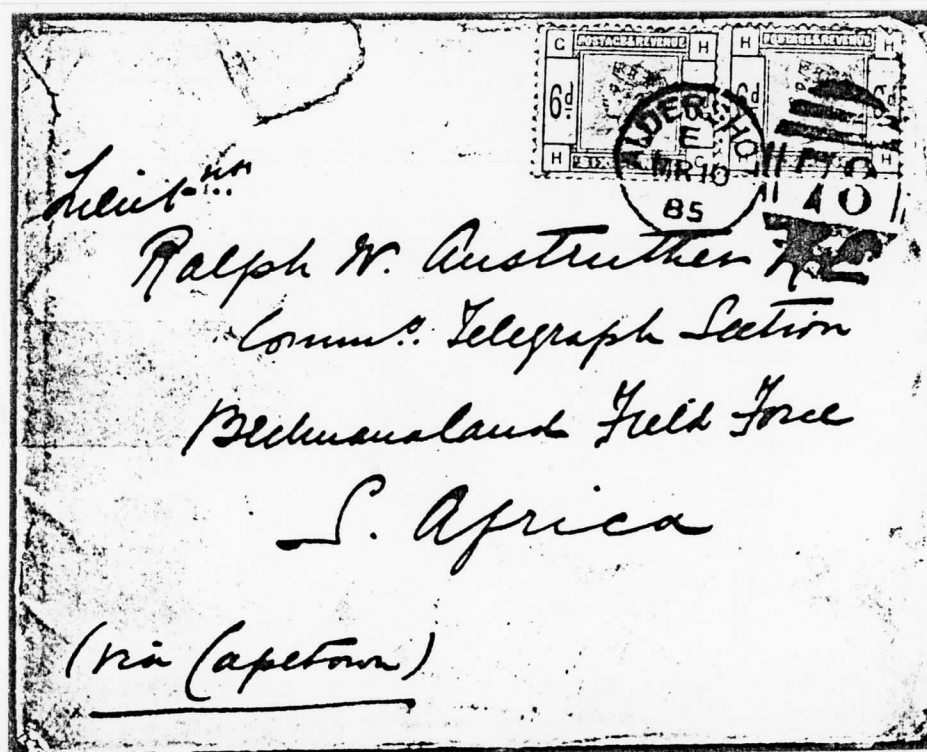 G POSTAGE & REVENUE H H POSTAGE & REVENUE
6d 6d
H H
ALDERSHO
E
MR 10
85
Lieut-
Ralph W. Anstruther R.E
Comm.g. Telegraph Section
Bechuanaland Field Force
S. Africa
(via Capetown)